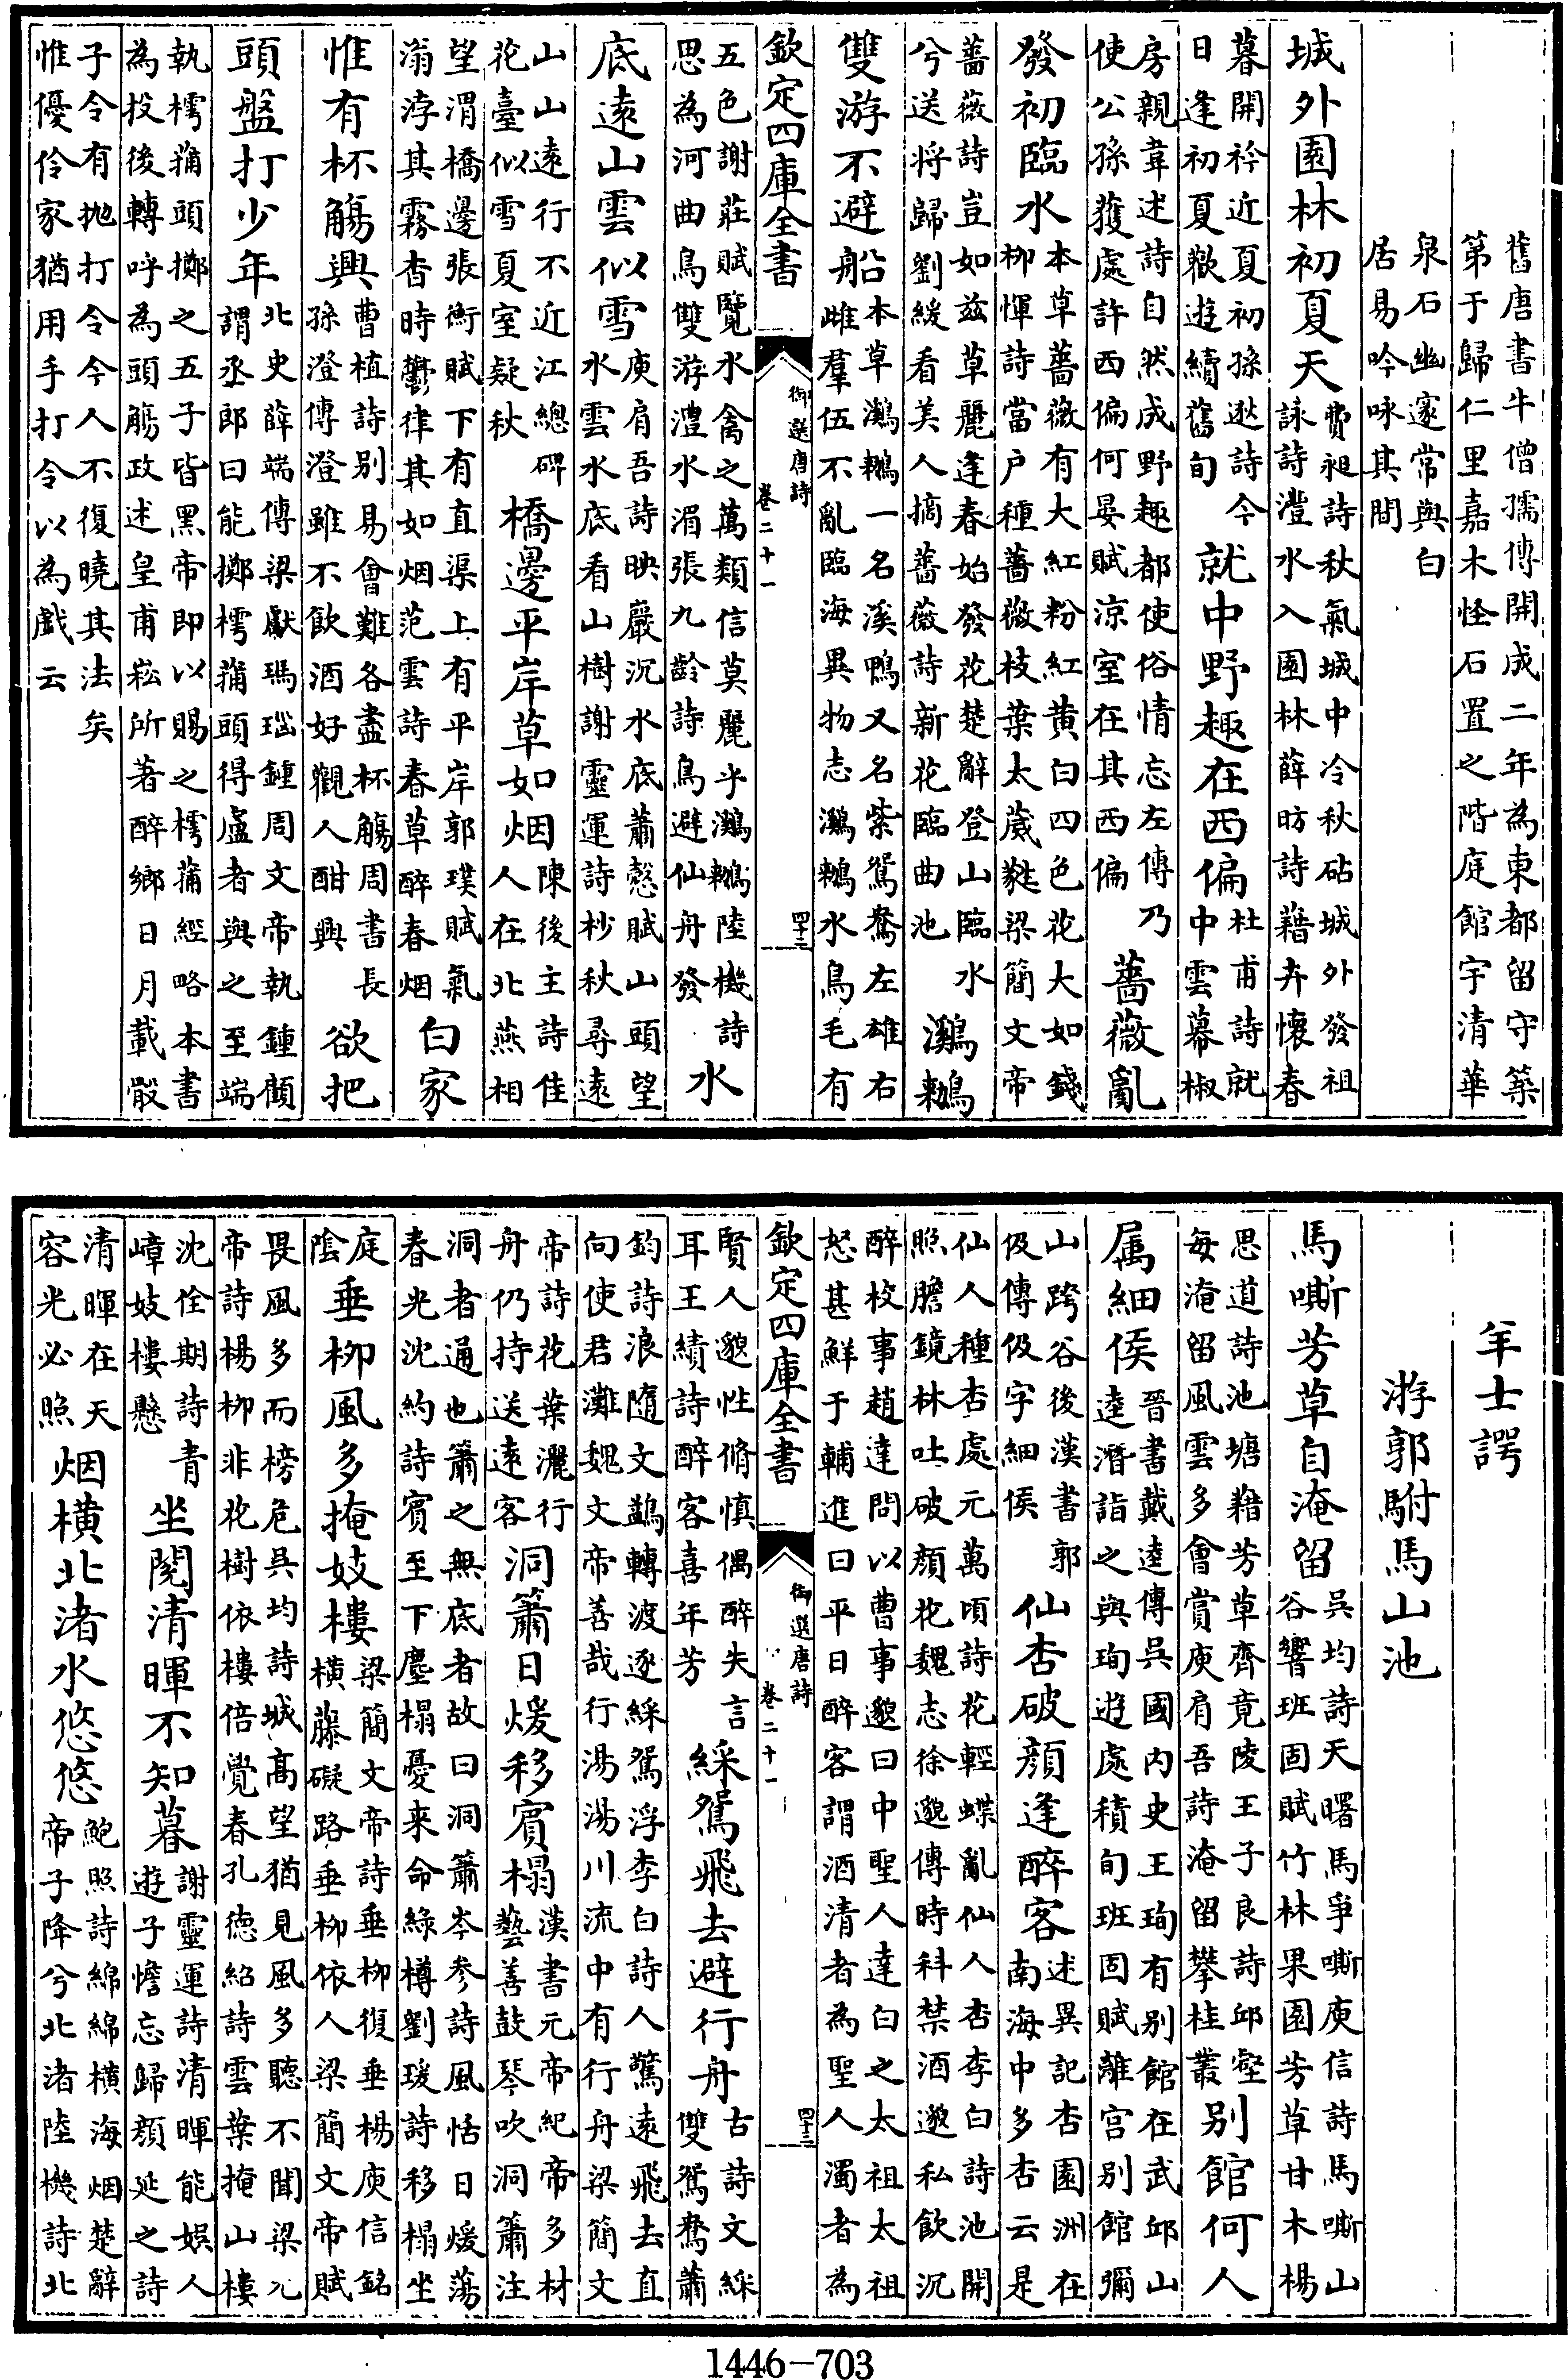 舊唐書牛僧孺傳開成二年為東都留守築
第于歸仁里嘉木怪石置之階庭館宇清華
泉石幽邃常與白
居易吟咏其間
城外園林初夏天
費昶詩秋氣城中冷秋砧城外發祖
詠詩灃水入園林薛昉詩藉卉懷春
暮開衿近夏初孫逖詩今
日逢初夏歡遊續舊旬
就中野趣在西偏
杜甫詩就
中雲幕椒
房親韋述詩自然成野趣都使俗情忘左傳乃
使公孫獲處許西偏何晏賦涼室在其西偏
薔薇亂
發初臨水
本草薔薇有大紅粉紅黄白四色花大如錢
柳惲詩當户種薔薇枝葉太葳蕤梁簡文帝
薔薇詩豈如兹草麗逢春始發花楚辭登山臨水
兮送将歸劉緩看美人摘薔薇詩新花臨曲池
鸂鶒
雙游不避船
本草鸂鶒一名溪鴨又名紫鴛鴦左雄右
雌羣伍不亂臨海異物志鸂鶒水鳥毛有
欽定四庫全書
御選唐詩
卷二十一
四十二
五色謝莊賦覽水禽之萬類信莫麗乎鸂鶒陸機詩
思為河曲鳥雙游澧水湄張九齡詩鳥避仙舟發
水
底遠山雲似雪
庾肩吾詩映巖沉水底蕭愨賦山頭望
水雲水底看山樹謝靈運詩杪秋尋遠
山山遠行不近江總碑
花臺似雪夏室疑秋
橋邊平岸草如烟
陳後主詩佳
人在北燕相
望渭橋邊張衡賦下有直渠上有平岸郭璞賦氣
滃浡其霧杳時鬱律其如烟范雲詩春草醉春烟
白家
惟有杯觴興
曹植詩别易會難各盡杯觴周書長
孫澄傳澄雖不飲酒好觀人酣興
欲把
頭盤打少年
北史薛端傳梁獻瑪瑙鍾周文帝執鍾顧
謂丞郎曰能擲樗蒱頭得盧者與之至端
執樗蒱頭擲之五子皆黑帝即以賜之樗蒱經略本書
為投後轉呼為頭觴政述皇甫崧所著醉鄉日月載骰
子令有抛打令今人不復曉其法矣
惟優伶家猶用手打令以為戲云
羊士諤
游郭駙馬山池
馬嘶芳草自淹留
吳均詩天曙馬爭嘶庾信詩馬嘶山
谷響班固賦竹林果園芳草甘木楊
思道詩池塘藉芳草齊竟陵王子良詩邱壑
每淹留風雲多會賞庾肩吾詩淹留攀桂叢
别館何人
属細侯
晉書戴逵傳吳國内史王珣有别館在武邱山
逵潛詣之與珣遊處積旬班固賦離宫别館彌
山跨谷後漢書郭
伋傳伋字細侯
仙杏破顔逢醉客
述異記杏園洲在
南海中多杏云是
仙人種杏處元萬頃詩花輕蝶亂仙人杏李白詩池開
照膽鏡林吐破顔花魏志徐邈傳時科禁酒邈私飲沉
醉校事趙達問以曹事邈曰中聖人達白之太祖太祖
怒甚鮮于輔進曰平日醉客謂酒清者為聖人濁者為
欽定四庫全書
御選唐詩
卷二十一
四十三
賢人邈性脩慎偶醉失言
耳王績詩醉客喜年芳
綵鴛飛去避行舟
古詩文綵
雙鴛鴦蕭
鈞詩浪隨文鷁轉渡逐綵鴛浮李白詩人驚遠飛去直
向使君灘魏文帝善哉行湯湯川流中有行舟梁簡文
帝詩花葉灑行
舟仍持送遠客
洞簫日煖移賓榻
漢書元帝紀帝多材
藝善鼓琴吹洞簫注
洞者通也簫之無底者故曰洞簫岑參詩風恬日煖蕩
春光沈約詩賓至下塵榻憂来命綠樽劉瑗詩移榻坐
庭
陰
垂柳風多掩妓樓
梁簡文帝詩垂柳復垂楊庾信銘
横藤礙路垂柳依人梁簡文帝賦
畏風多而榜危吳均詩城高望猶見風多聽不聞梁元
帝詩楊柳非花樹依樓倍覺春孔德紹詩雲葉掩山樓
沈佺期詩青
嶂妓樓懸
坐閱清暉不知暮
謝靈運詩清暉能娛人
遊子憺忘歸顔延之詩
清暉在天
容光必照
烟横北渚水悠悠
鮑照詩綿綿横海烟楚辭
帝子降兮北渚陸機詩北
1446-703